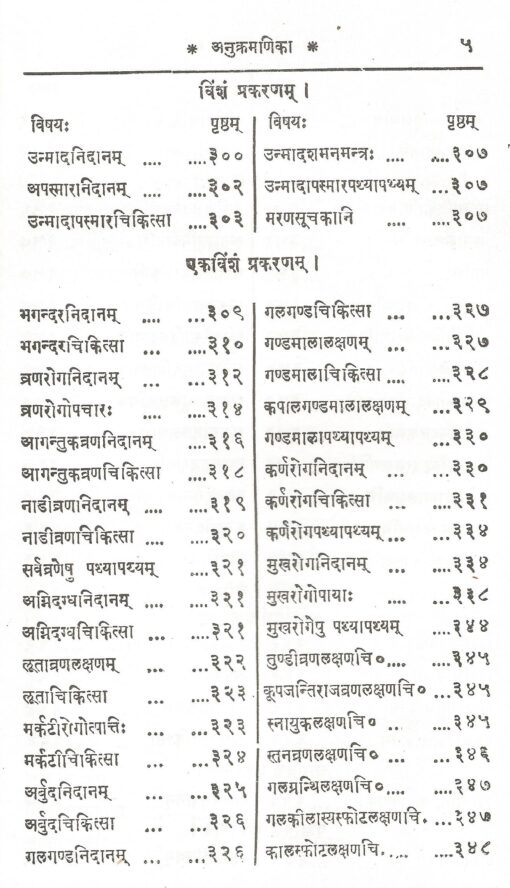 * अनुक्रमणिका * ५
विंशं प्रकरणम् ।
विषयः पृष्ठम्
उन्मादनिदानम् .... ....३००
अपस्मारनिदानम् .... ....३०२
उन्मादापस्मारचिकित्सा ....३०३
विषयः पृष्ठम्
उन्मादशमनमन्त्रः .... ....३०७
उन्मादापस्मारपथ्यापथ्यम् ....३०७
मरणसूचकानि .... ....३०७
एकविंशं प्रकरणम् ।
भगन्दरनिदानम् .... ...३०९
भगन्दरचिकित्सा ... ...३१०
व्रणरोगनिदानम् ... ...३१२
व्रणरोगोपचारः ... ...३१४
आगन्तुकव्रणनिदानम् ...३१६
आगन्तुकव्रणचिकित्सा ...३१८
नाडीव्रणनिदानम् ... ...३१९
नाडीव्रणचिकित्सा .... ...३२०
सर्वव्रणेषु पथ्यापथ्यम् ....३२१
अग्निदग्धनिदानम् .... ....३२१
अग्निदग्धचिकित्सा ... ...३२१
लूताव्रणलक्षणम् ... ...३२२
लूताचिकित्सा ... ....३२३
मर्कटीरोगोत्पात्तिः ... ...३२३
मर्कटीचिकित्सा ... ...३२४
अर्बुदनिदानम् ... ...३२५
अर्बुदचिकित्सा ... ...३२६
गलगण्डनिदानम् ... ...३२६
गलगण्डचिकित्सा ... ...३२७
गण्डमालालक्षणम् ... ...३२७
गण्डमालाचिकित्सा .... ...३२८
कपालगण्डमालालक्षणम् ...३२९
गण्डमालापथ्यापथ्यम् ...३३०
कर्णरोगनिदानम् ... ...३३०
कर्णरोगचिकित्सा ... ...३३१
कर्णरोगपथ्यापथ्यम् ... ...३३४
मुखरोगनिदानम् ... ...३३४
मुखरोगोपायाः ... ...३३८
मुखरोगेषु पथ्यापथ्यम् ...३४४
तुण्डीव्रणलक्षणचि०.... ...३४५
कूपजन्तिराजव्रणलक्षणचि० ...३४५
स्नायुकलक्षणचि० .. ...३४५
स्तनव्रणलक्षणचि० ... ...३४६
गलग्रन्थिलक्षणचि० ... ...३४७
गलकीलास्यस्फोटलक्षणचि. ...३४७
कालस्फोटलक्षणचि. ... ....३४८